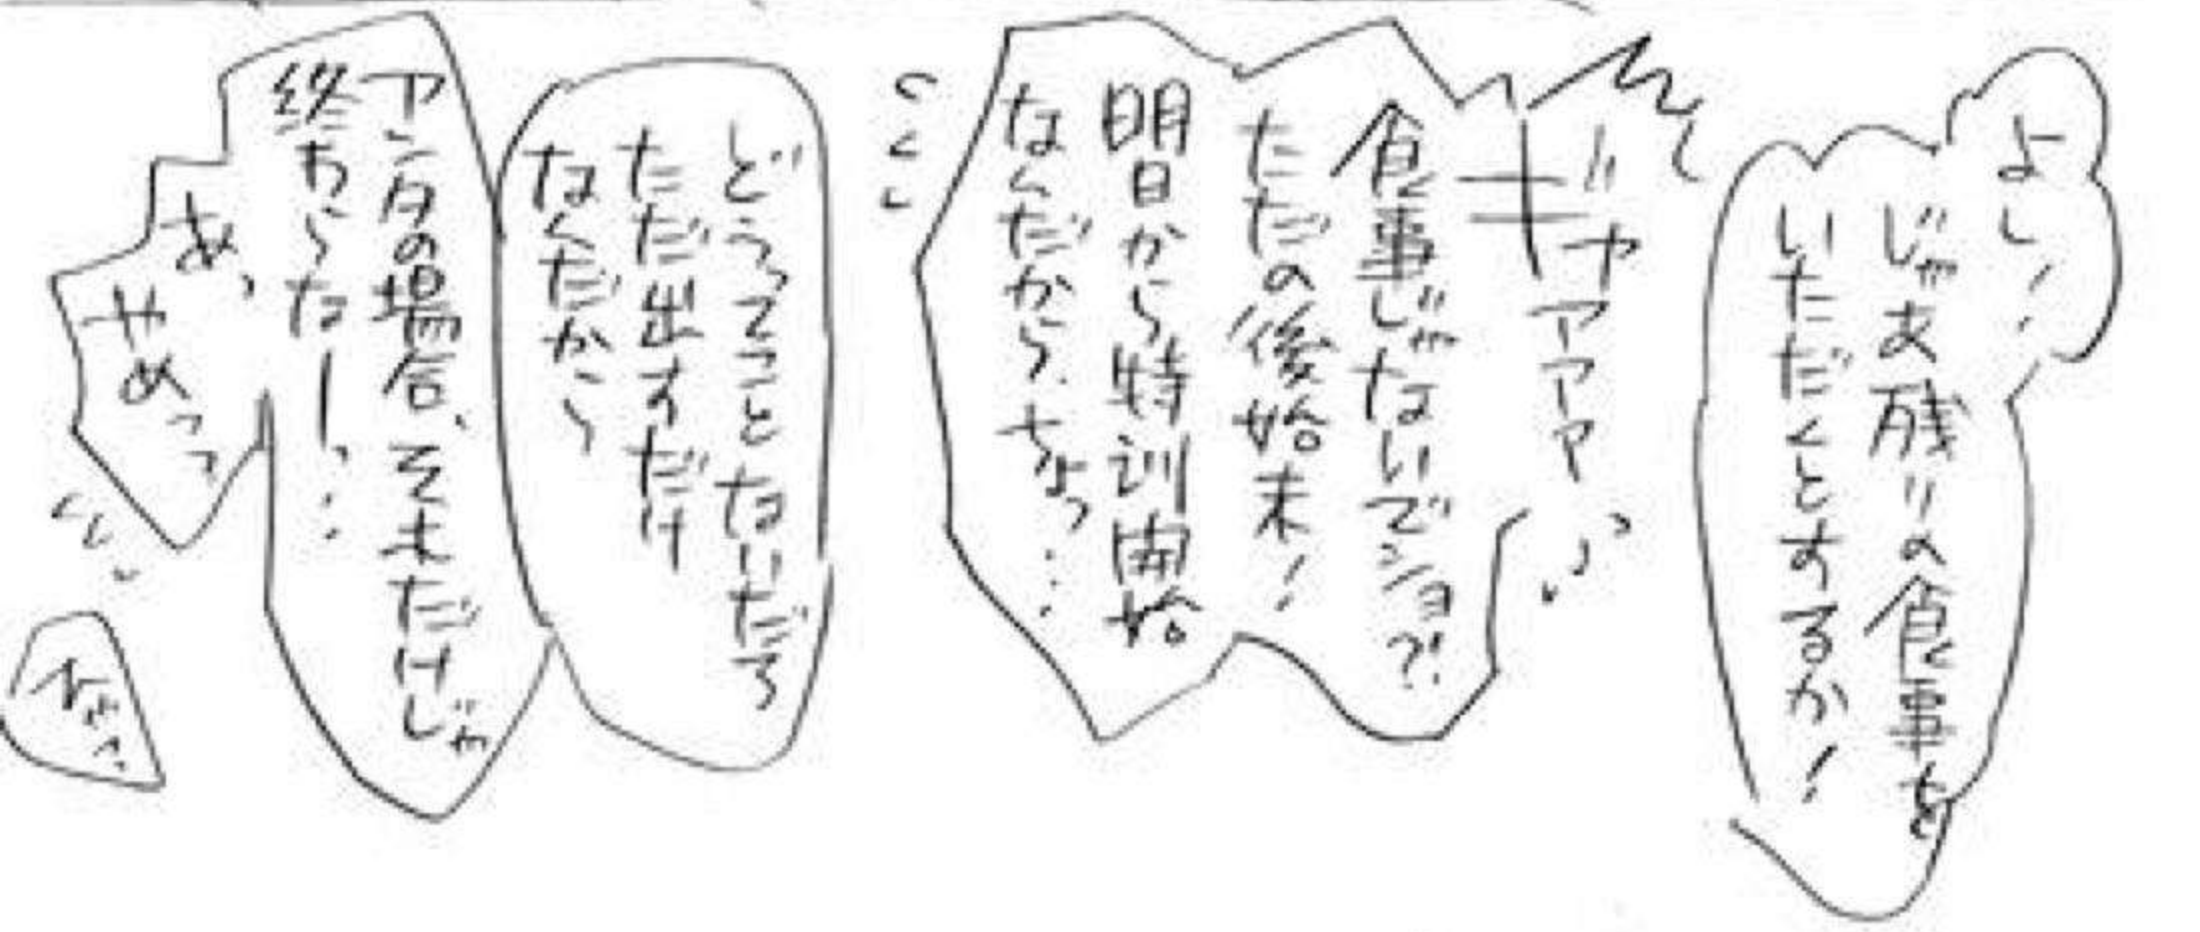 よし!
じゃあ残りの食事を
いただくとするか!
ギャアアアア
食事じゃないでショ?!
ただの後始末!
明日から特訓開始
なんだから、ちょっ…
どうってことないだろ
ただ出すだけ
なんだから
アンタの場合、それだけじゃ
終わらなー…
あ、
やめっっ